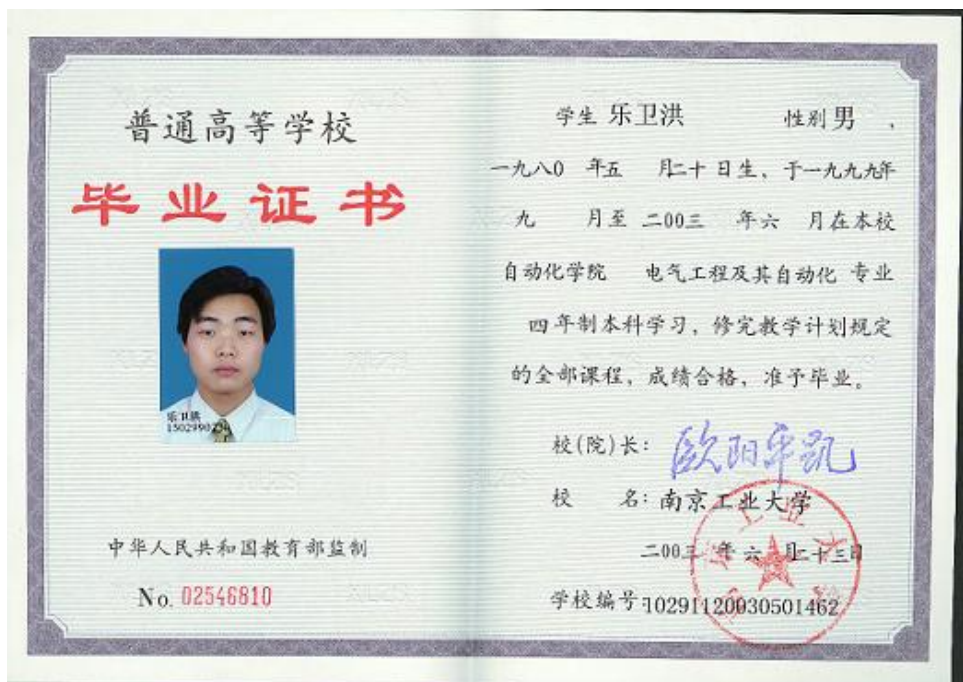 普通高等学校
毕业证书
乐卫洪
1502990234
中华人民共和国教育部监制
No. 02546810
学生 乐卫洪 性别 男 ,
一九八0 年五 月二十 日生、于一九九九年
九 月至 二00三 年六 月在本校
自动化学院 电气工程及其自动化 专业
四年制本科学习，修完教学计划规定
的全部课程，成绩合格，准予毕业。
校(院)长: 欧阳平凯
校 名: 南京工业大学
二00三 年 六 月二十三日
学校编号:10291120030501462
南京工业大学